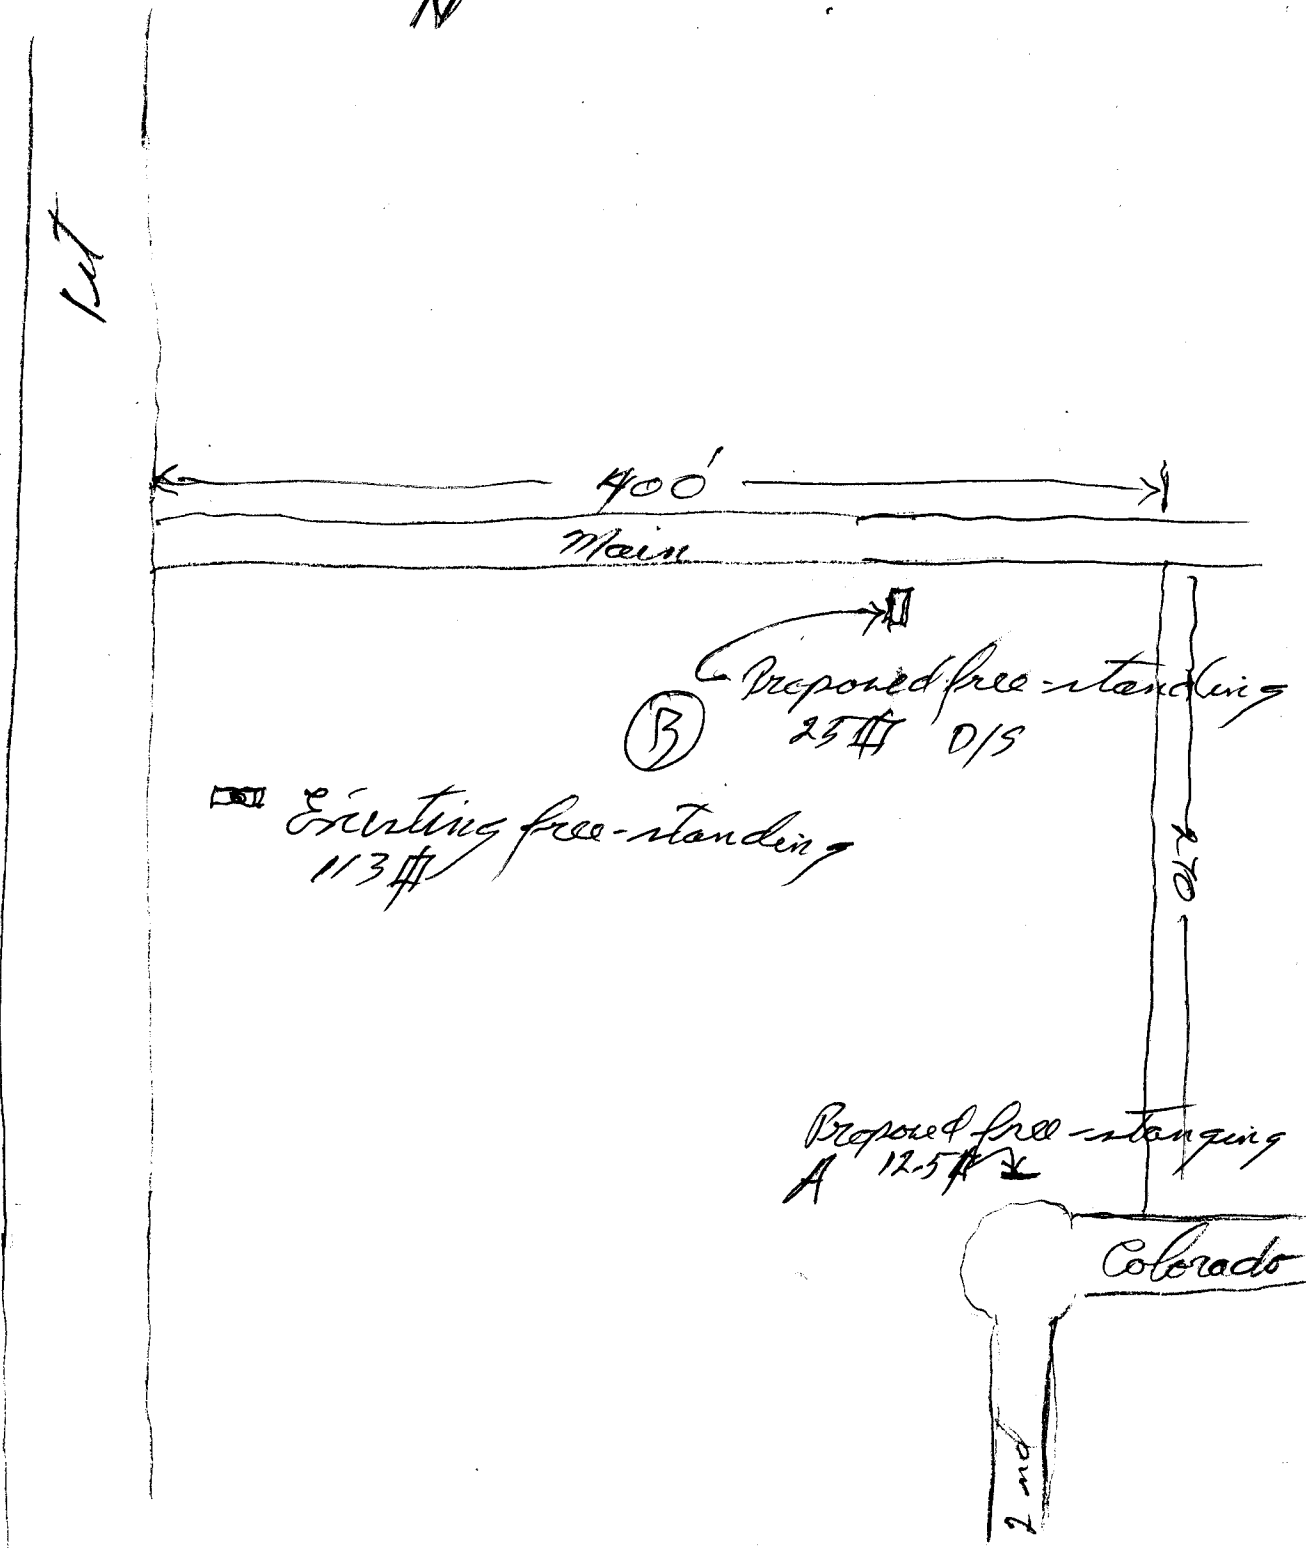 N
1st
400'
Main
Proposed free-standing
B 25 # D/S
Existing free-standing
113 #
270
Proposed free-standing
A 12.5 #
Colorado
2nd